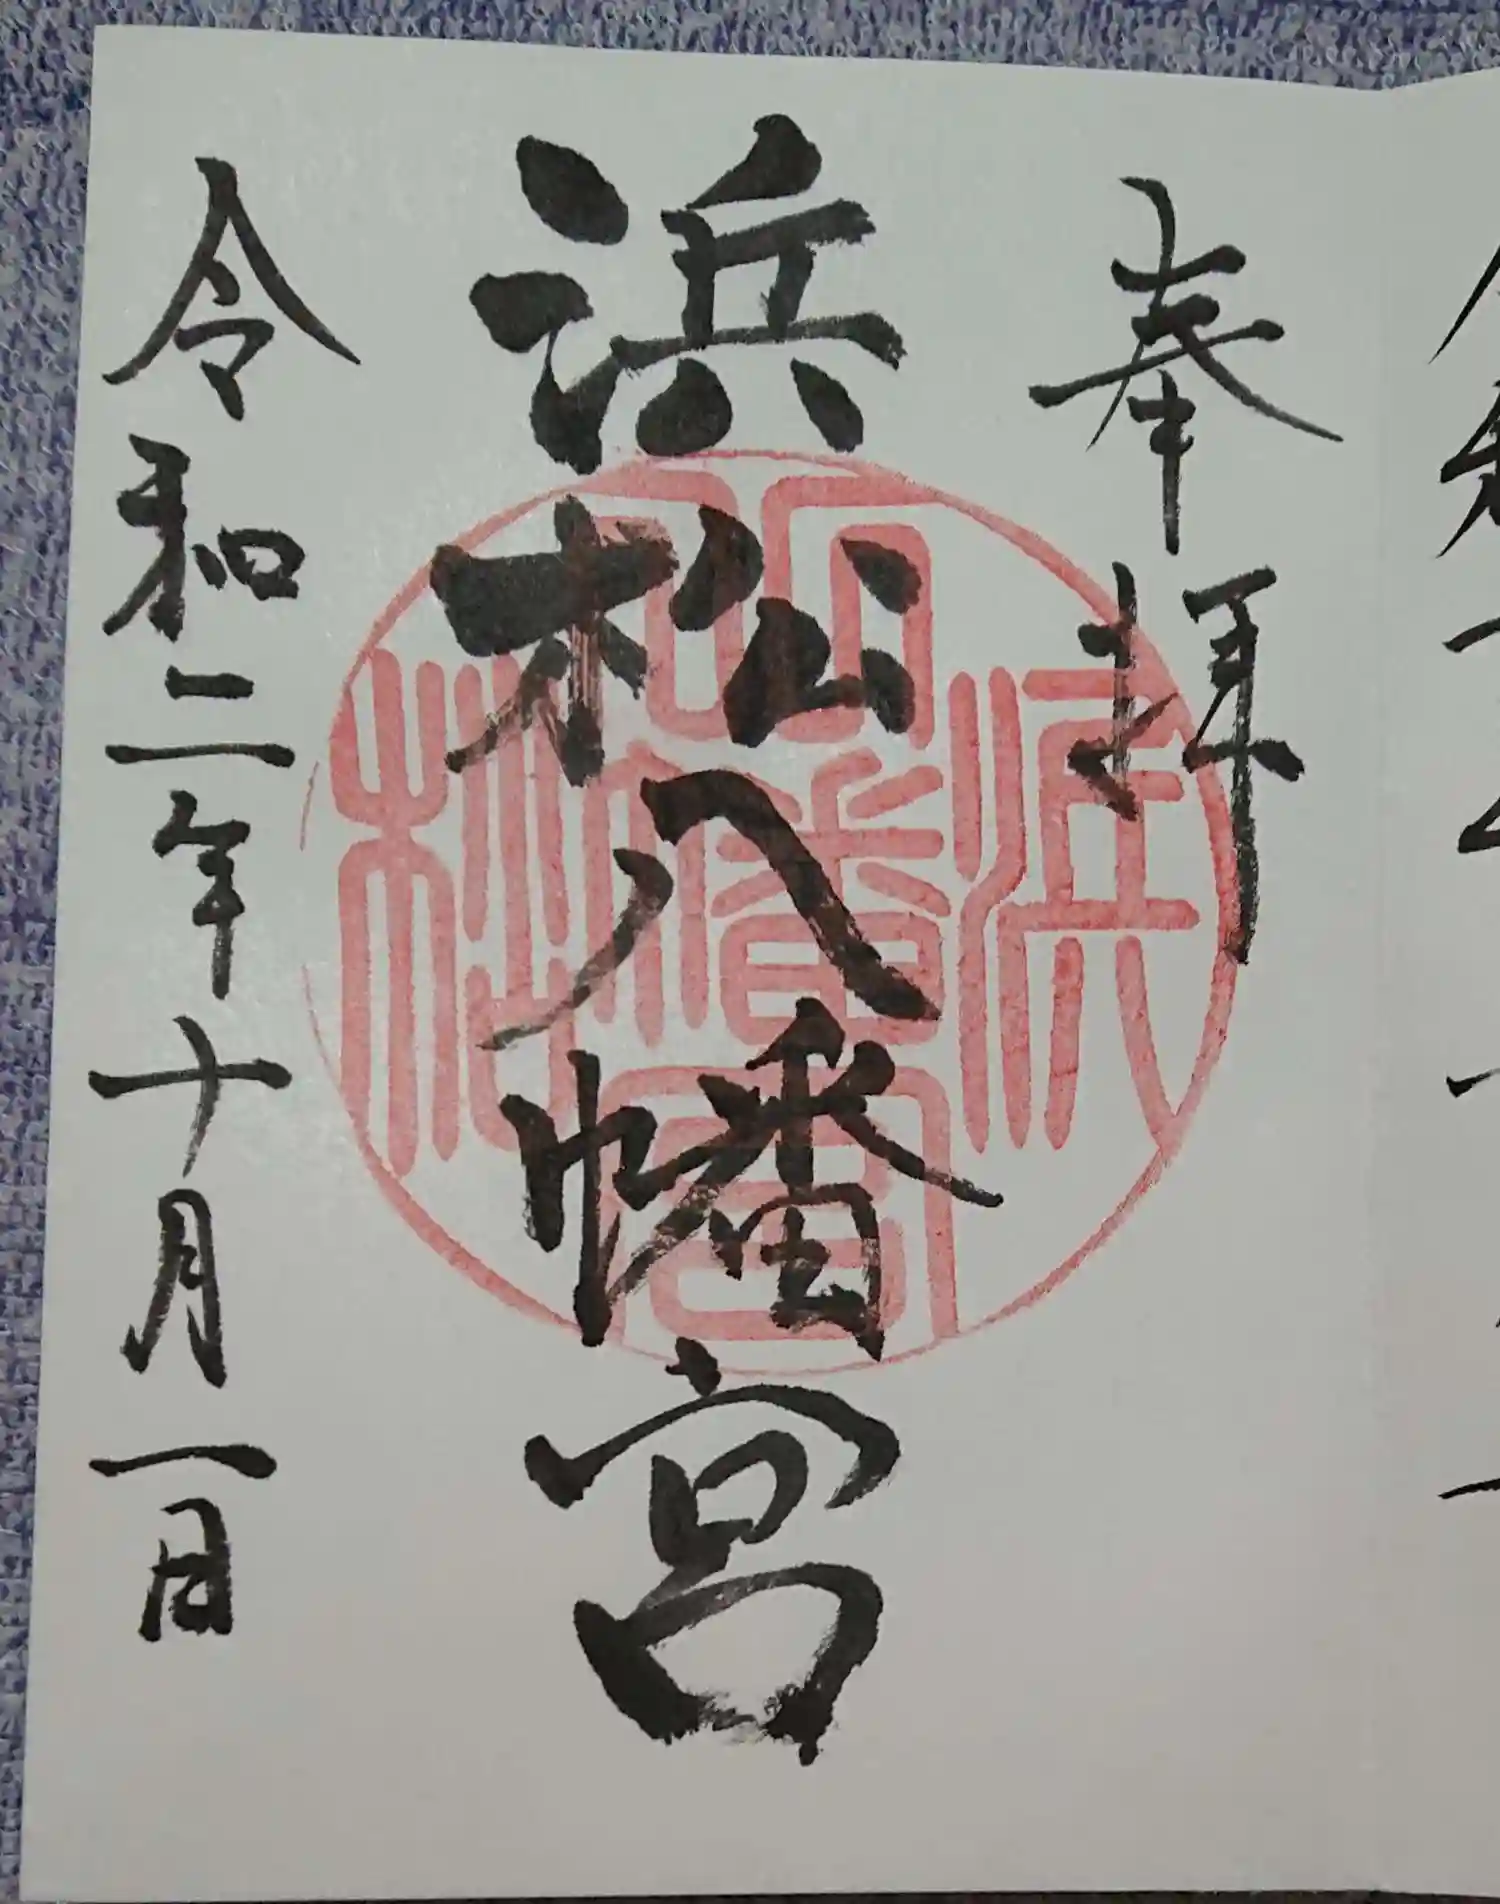 奉拝
浜松八幡宮
浜松八幡宮
令和二年十月一日